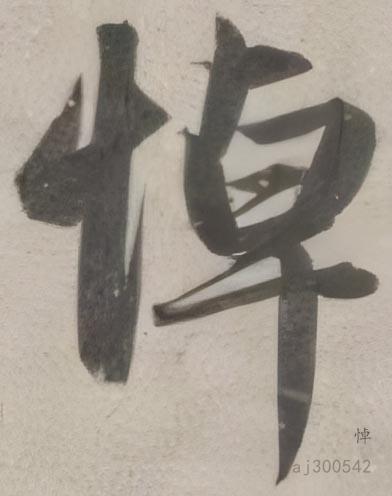 悼
悼
aj300542